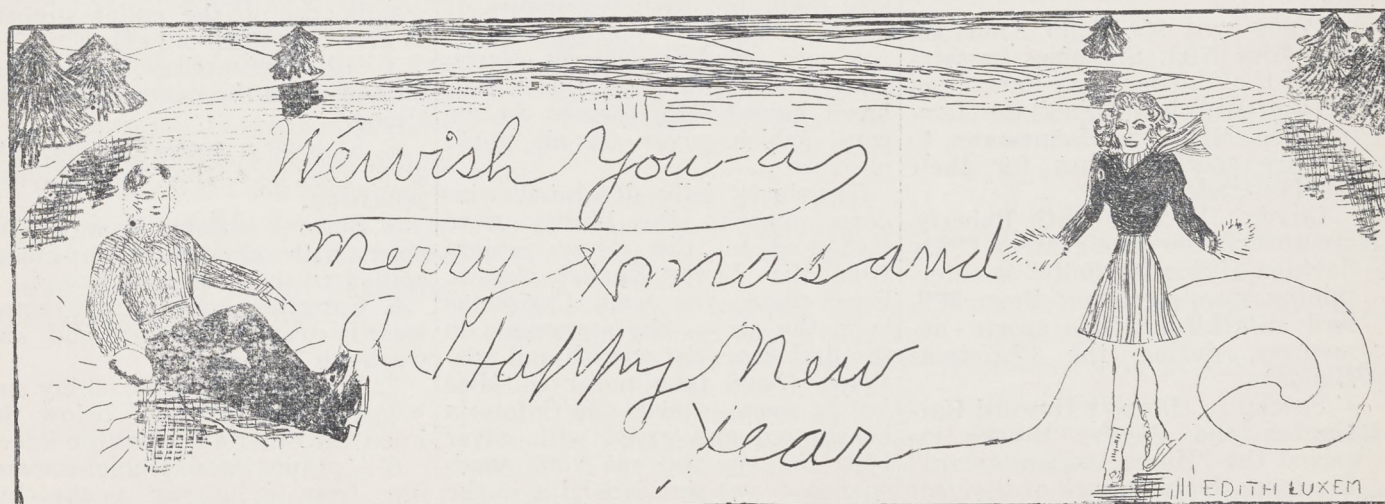 We wish You a
Merry Xmas and
A Happy New
Year
EDITH LUXEM